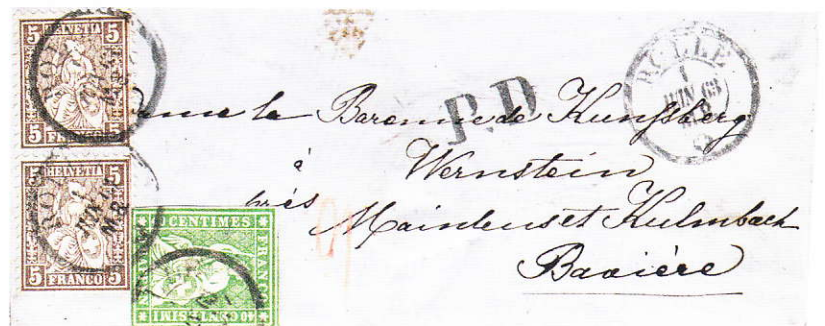 5 HELVETIA 5
5 FRANCO 5
5 HELVETIA 5
5 FRANCO 5
CENTIMES
FRANCO
40 CENTESIMI
ROLLE
1
JUIN 63
P.D
la Baronne de Kunssberg
à
Wernstein
près Mainleus et Kulmbach
Bavière